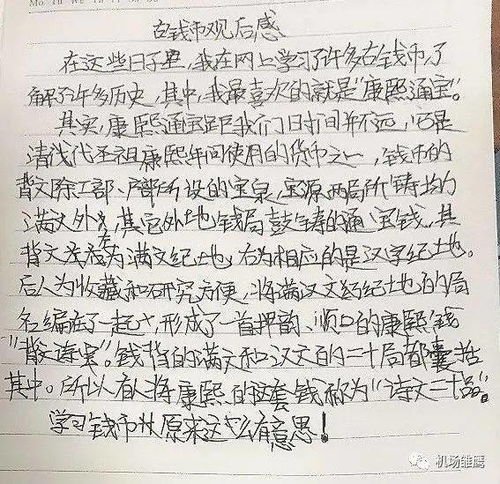 Mo Tu We Th Fr Sa Su
古钱币观后感
在这些日子里,我在网上学习了许多古钱币,了
解了许多历史,其中,我最喜欢的就是"康熙通宝"。
其实,康熙通宝距我们时间并不远,它是
清代圣祖康熙年间使用的货币之一,钱币的
背文除工部、户部所设的宝泉、宝源两局所铸的
满文外,其它外地钱局鼓铸的通宝钱,其
背文左为满文纪地,右为相应的是汉字纪地。
后人为收藏和研究方便,将满汉文纪地的局
名编在了一起,形成了一首押韵、顺口的康熙钱
"背文诗"。钱背的满文和汉文的二十局都囊括
其中。所以有人将康熙的这套钱称为"诗文二十品"。
学习钱币 原来这么有意思!
机场雏鹰